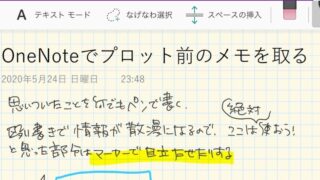 テキスト モード なげなわ選択 スペースの挿入
OneNoteでプロット前のメモを取る
2020年5月24日 日曜日 23:48
思いついたことを何でもペンで書く。
絶対
殴り書きで情報が散漫になるので、ここは使おう!
と思った部分はマーカーで目立たせたりする